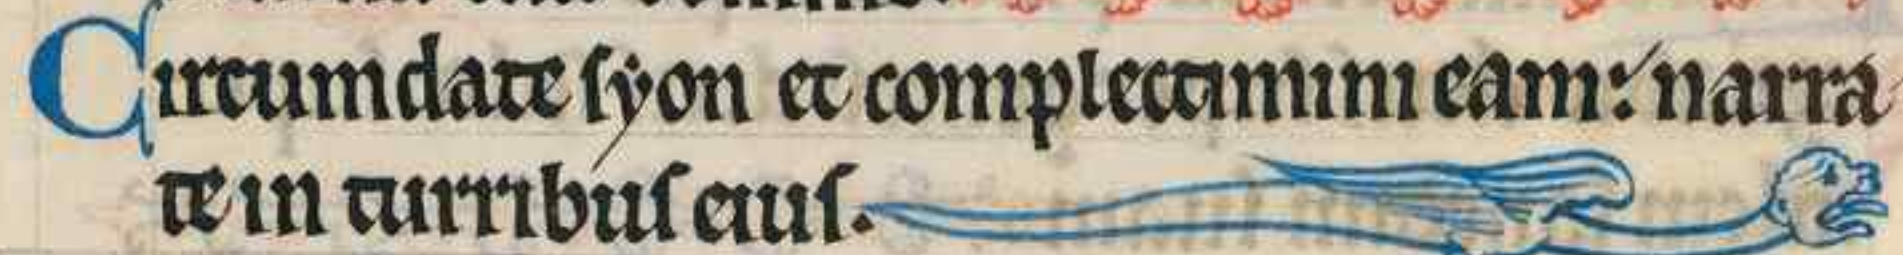 Circumdate syon et complectimini eam: narra
te in turribus eius.